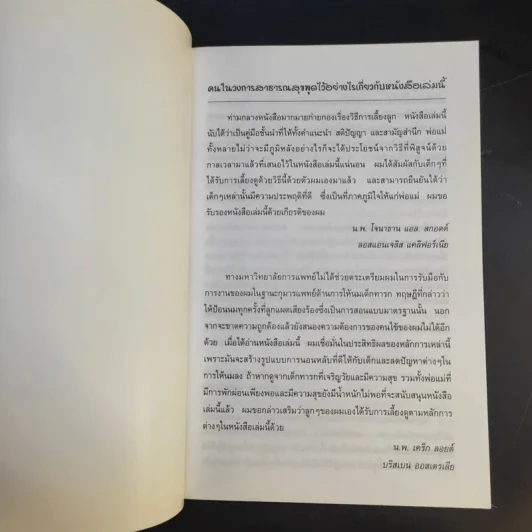 คนในวงการสาธารณสุขพูดไว้อย่างไรเกี่ยวกับหนังสือเล่มนี้
ท่ามกลางหนังสือมากมายก่ายกองเรื่องวิธีการเลี้ยงลูก หนังสือเล่มนี้
นับได้ว่าเป็นคู่มือชั้นนำที่ให้ทั้งคำแนะนำ สติปัญญา และสามัญสำนึก พ่อแม่
ทั้งหลายไม่ว่าจะมีภูมิหลังอย่างไรก็จะได้ประโยชน์จากวิธีที่พิสูจน์ด้วย
กาลเวลามาแล้วที่เสนอไว้ในหนังสือเล่มนี้แน่นอน ผมได้สัมผัสกับเด็กๆที่
ได้รับการเลี้ยงดูด้วยวิธีนี้ด้วยตัวผมเองมาแล้ว และสามารถยืนยันได้ว่า
เด็กๆเหล่านั้นมีความประพฤติที่ดี ซึ่งเป็นที่ภาคภูมิใจให้แก่พ่อแม่ ผมขอ
รับรองหนังสือเล่มนี้ด้วยเกียรติของผม
น.พ. โจนาธาน แอล. สกอตต์
ลอสแอนเจลิส แคลิฟอร์เนีย
ทางมหาวิทยาลัยการแพทย์ไม่ได้ช่วยตระเตรียมผมในการรับมือกับ
การงานของผมในฐานะกุมารแพทย์ด้านการให้นมเด็กทารก ทฤษฎีที่กล่าวว่า
ให้ป้อนนมทุกครั้งที่ลูกแผดเสียงร้องซึ่งเป็นการสอนแบบมาตรฐานนั้น นอก
จากจะขาดความถูกต้องแล้วยังสนองความต้องการของคนไข้ของผมไม่ได้อีก
ด้วย เมื่อได้อ่านหนังสือเล่มนี้ ผมเชื่อมั่นในประสิทธิผลของหลักการเหล่านี้
เพราะมันจะสร้างรูปแบบการนอนหลับที่ดีให้กับเด็กและลดปัญหาต่างๆใน
การให้นมลง ถ้าหากดูจากเด็กทารกที่เจริญวัยและมีความสุข รวมทั้งพ่อแม่ที่
มีการพักผ่อนเพียงพอและมีความสุขยังมีน้ำหนักไม่พอที่จะสนับสนุนหนังสือ
เล่มนี้แล้ว ผมขอกล่าวเสริมว่าลูกๆของผมเองได้รับการเลี้ยงดูตามหลักการ
ต่างๆในหนังสือเล่มนี้ด้วย
น.พ. เดริก ลอยด์
บริสเบน ออสเตรเลีย